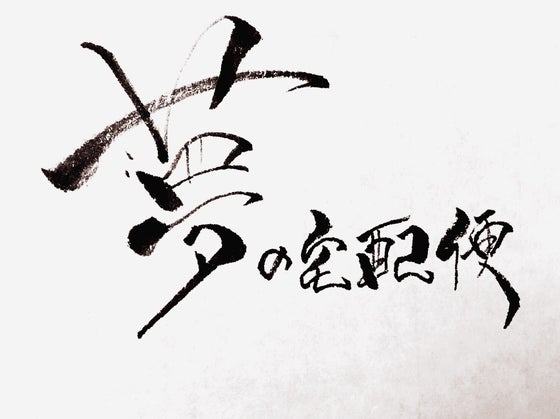 夢の宅配便